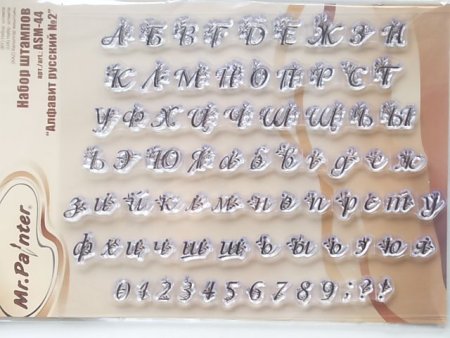 Набор штампов
арт./art. ASM-44
"Алфавит русский №2"
Mr.Painter
А Б В Г Д Е Ж З И
К Л М Н О П Р С Т
У Ф Х Ц Ч Ш Щ Ъ Ы
Ь Э Ю Я а б в г д е ж
з и й к л м н о п р с т у
ф х ц ч ш щ ъ ы ь э ю я
0 1 2 3 4 5 6 7 8 9 ; ? !